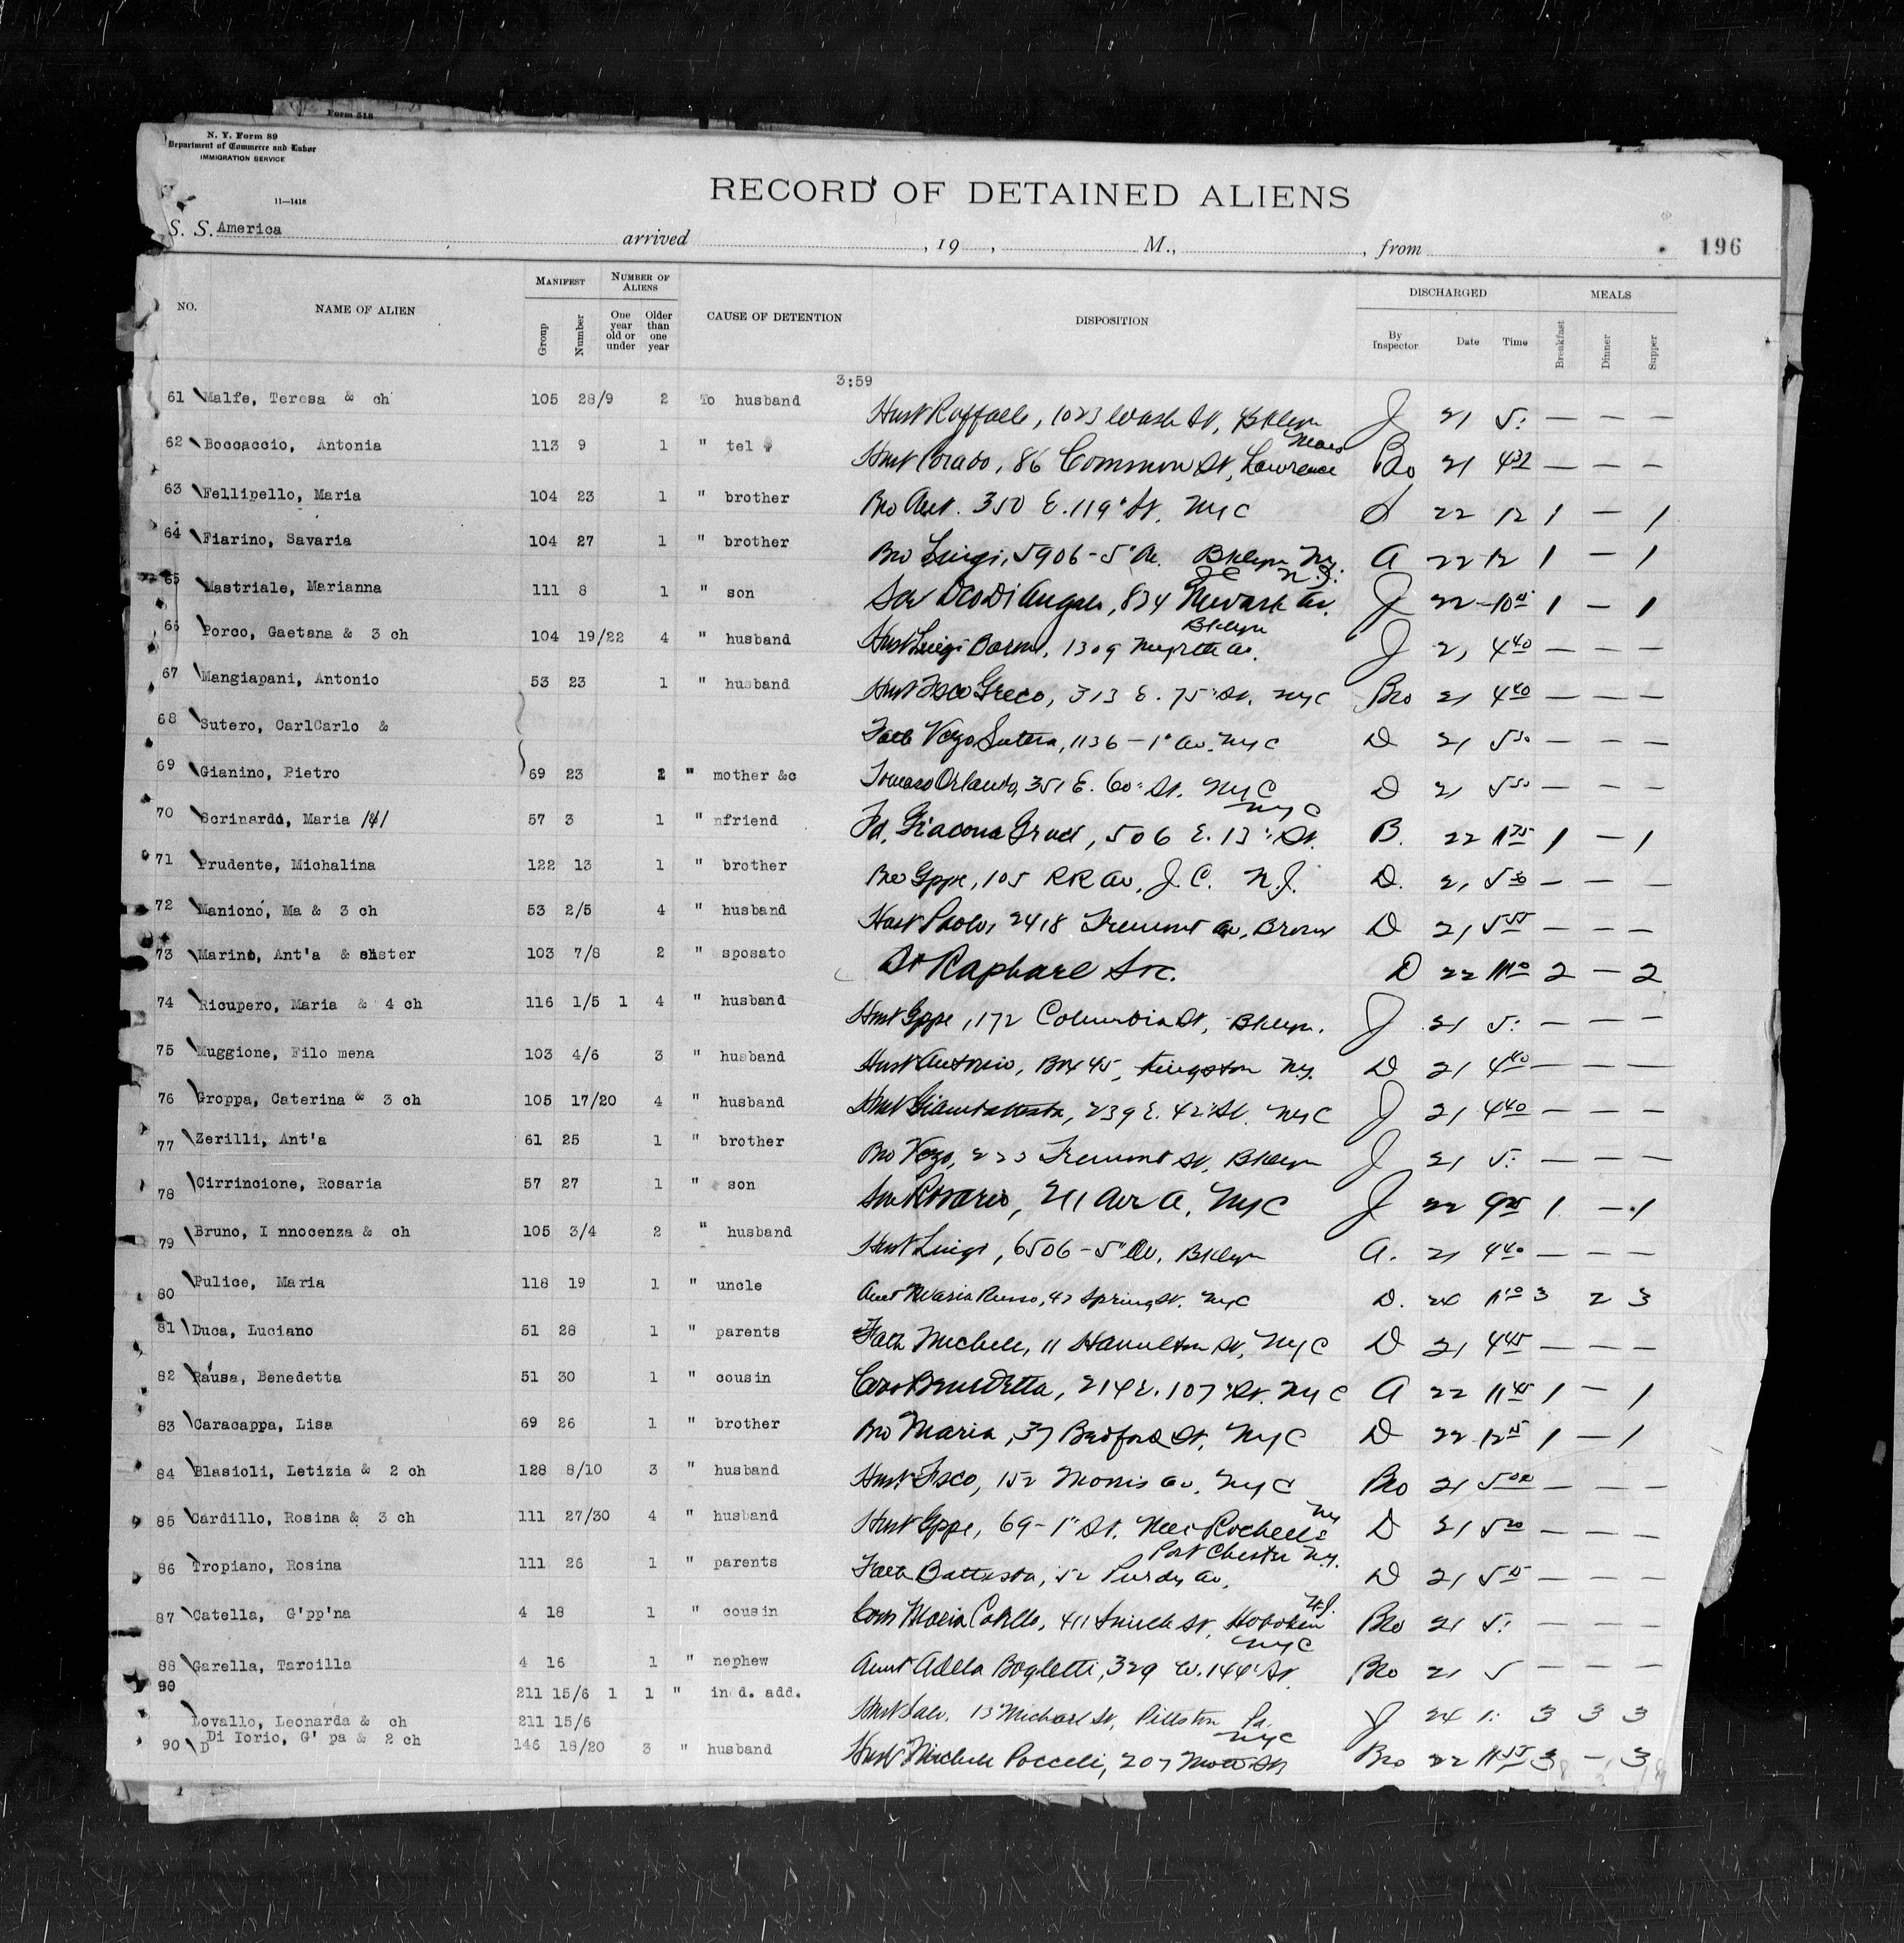 Form 518
N. Y. Form 89
Department of Commerce and Labor
IMMIGRATION SERVICE
11—1418
RECORD OF DETAINED ALIENS
S. S. America arrived , 19 , M., , from 196
NO. NAME OF ALIEN MANIFEST NUMBER OF ALIENS CAUSE OF DETENTION DISPOSITION DISCHARGED MEALS
Group Number One year old or under Older than one year By Inspector Date Time Breakfast Dinner Supper
3:59
61 Malfe, Teresa & ch 105 28/9 2 To husband Husb Raffaele, 1023 Wash St, Bklyn J 21 5: — — —
62 Boccaccio, Antonia 113 9 1 " tel Husb Corado, 86 Common St, Lawrence Mass Bro 21 4 32 — — —
63 Fellipello, Maria 104 23 1 " brother Bro Ant. 350 E. 119" St. NyC 22 12 1 — 1
64 Fiarino, Savaria 104 27 1 " brother Bro Luigi, 5906 - 5" Av. Bklyn Ny. A 22 12 1 — 1
65 Mastriale, Marianna 111 8 1 " son Son Di Angelo, 834 Newark Av. J C N. J. J 22 10 45 1 — 1
66 Porco, Gaetana & 3 ch 104 19/22 4 " husband Husb Luigi, 1309 Myrtle Av. Bklyn J 21 4 40 — — —
67 Mangiapani, Antonio 53 23 1 " husband Husb Fsco Greco, 313 E. 75" St. NyC Bro 21 4 40 — — —
68 Sutero, CarlCarlo & Fath Vzo Sutera, 1136 - 1" Av. NyC D 21 5 30 — — —
69 Gianino, Pietro 69 23 2 " mother &c Tomaso Orlando, 351 E. 60" St. NyC D 21 5 30 — — —
70 Scrinardo, Maria 57 3 1 " nfriend Fd. Giacona, 506 E. 13" St. NyC B. 22 11 35 1 — 1
71 Prudente, Michalina 122 13 1 " brother Bro Gppe, 105 RR Av, J. C. N. J. D. 21 5 30 — — —
72 Maniono, Ma & 3 ch 53 2/5 4 " husband Husb Paolo, 2418 Tremont Av, Bronx D 21 5 55 — — —
73 Marino, Ant'a & sister 103 7/8 2 " sposato St Raphael Soc. D 22 11 10 2 — 2
74 Ricupero, Maria & 4 ch 116 1/5 1 4 " husband Husb Gppe, 172 Columbia St, Bklyn. J 21 5: — — —
75 Muggione, Filo mena 103 4/6 3 " husband Husb Antonio, Box 45, Kingston Ny. D 21 4 40 — — —
76 Groppa, Caterina & 3 ch 105 17/20 4 " husband Husb Giambattista, 239 E. 42" St. NyC J 21 4 40 — — —
77 Zerilli, Ant'a 61 25 1 " brother Bro Vzo, 223 Tremont St, Bklyn J 21 5: — — —
78 Cirrincione, Rosaria 57 27 1 " son Son Rosario, 211 Ave A, NyC J 22 9 25 1 — 1
79 Bruno, I nnocenza & ch 105 3/4 2 " husband Husb Luigi, 6506 - 5" Av, Bklyn A. 21 4 40 — — —
80 Pulice, Maria 118 19 1 " uncle Aunt Maria Russo, 42 Spring St. NyC D. 24 11 10 3 2 3
81 Duca, Luciano 51 28 1 " parents Fath Michele, 11 Hamilton St, NyC D 21 4 45 — — —
82 Rausa, Benedetta 51 30 1 " cousin Cous Benedetta, 214 E. 107" St. NyC A 22 11 45 1 — 1
83 Caracappa, Lisa 69 26 1 " brother Bro Maria, 37 Bedford St, NyC D 22 12 15 1 — 1
84 Blasioli, Letizia & 2 ch 128 8/10 3 " husband Husb Fsco, 152 Morris Av, NyC Bro 21 5 00 — — —
85 Cardillo, Rosina & 3 ch 111 27/30 4 " husband Husb Gppe, 69 - 1" St. New Rochelle Ny D 21 5 20 — — —
86 Tropiano, Rosina 111 26 1 " parents Fath Battista, 52 Purdy Av, Port Chester Ny. D 21 5 15 — — —
87 Catella, G'pp'na 4 18 1 " cousin Cous Maria Catella, 411 St, Hoboken N.J. Bro 21 5: — — —
88 Garella, Tarcilla 4 16 1 " nephew Aunt Adela Bogletti, 329 W. 144" St. NyC Bro 21 5 — — —
90 211 15/6 1 1 " ind. add.
Lovallo, Leonarda & ch 211 15/6 Husb Salv. 13 Michael St, Pittston Pa. J 24 1: 3 3 3
90 D Di Iorio, G' pa & 2 ch 146 18/20 3 " husband Husb Michele Porcelli, 207 Mott St NyC Bro 22 11 55 3 — 3